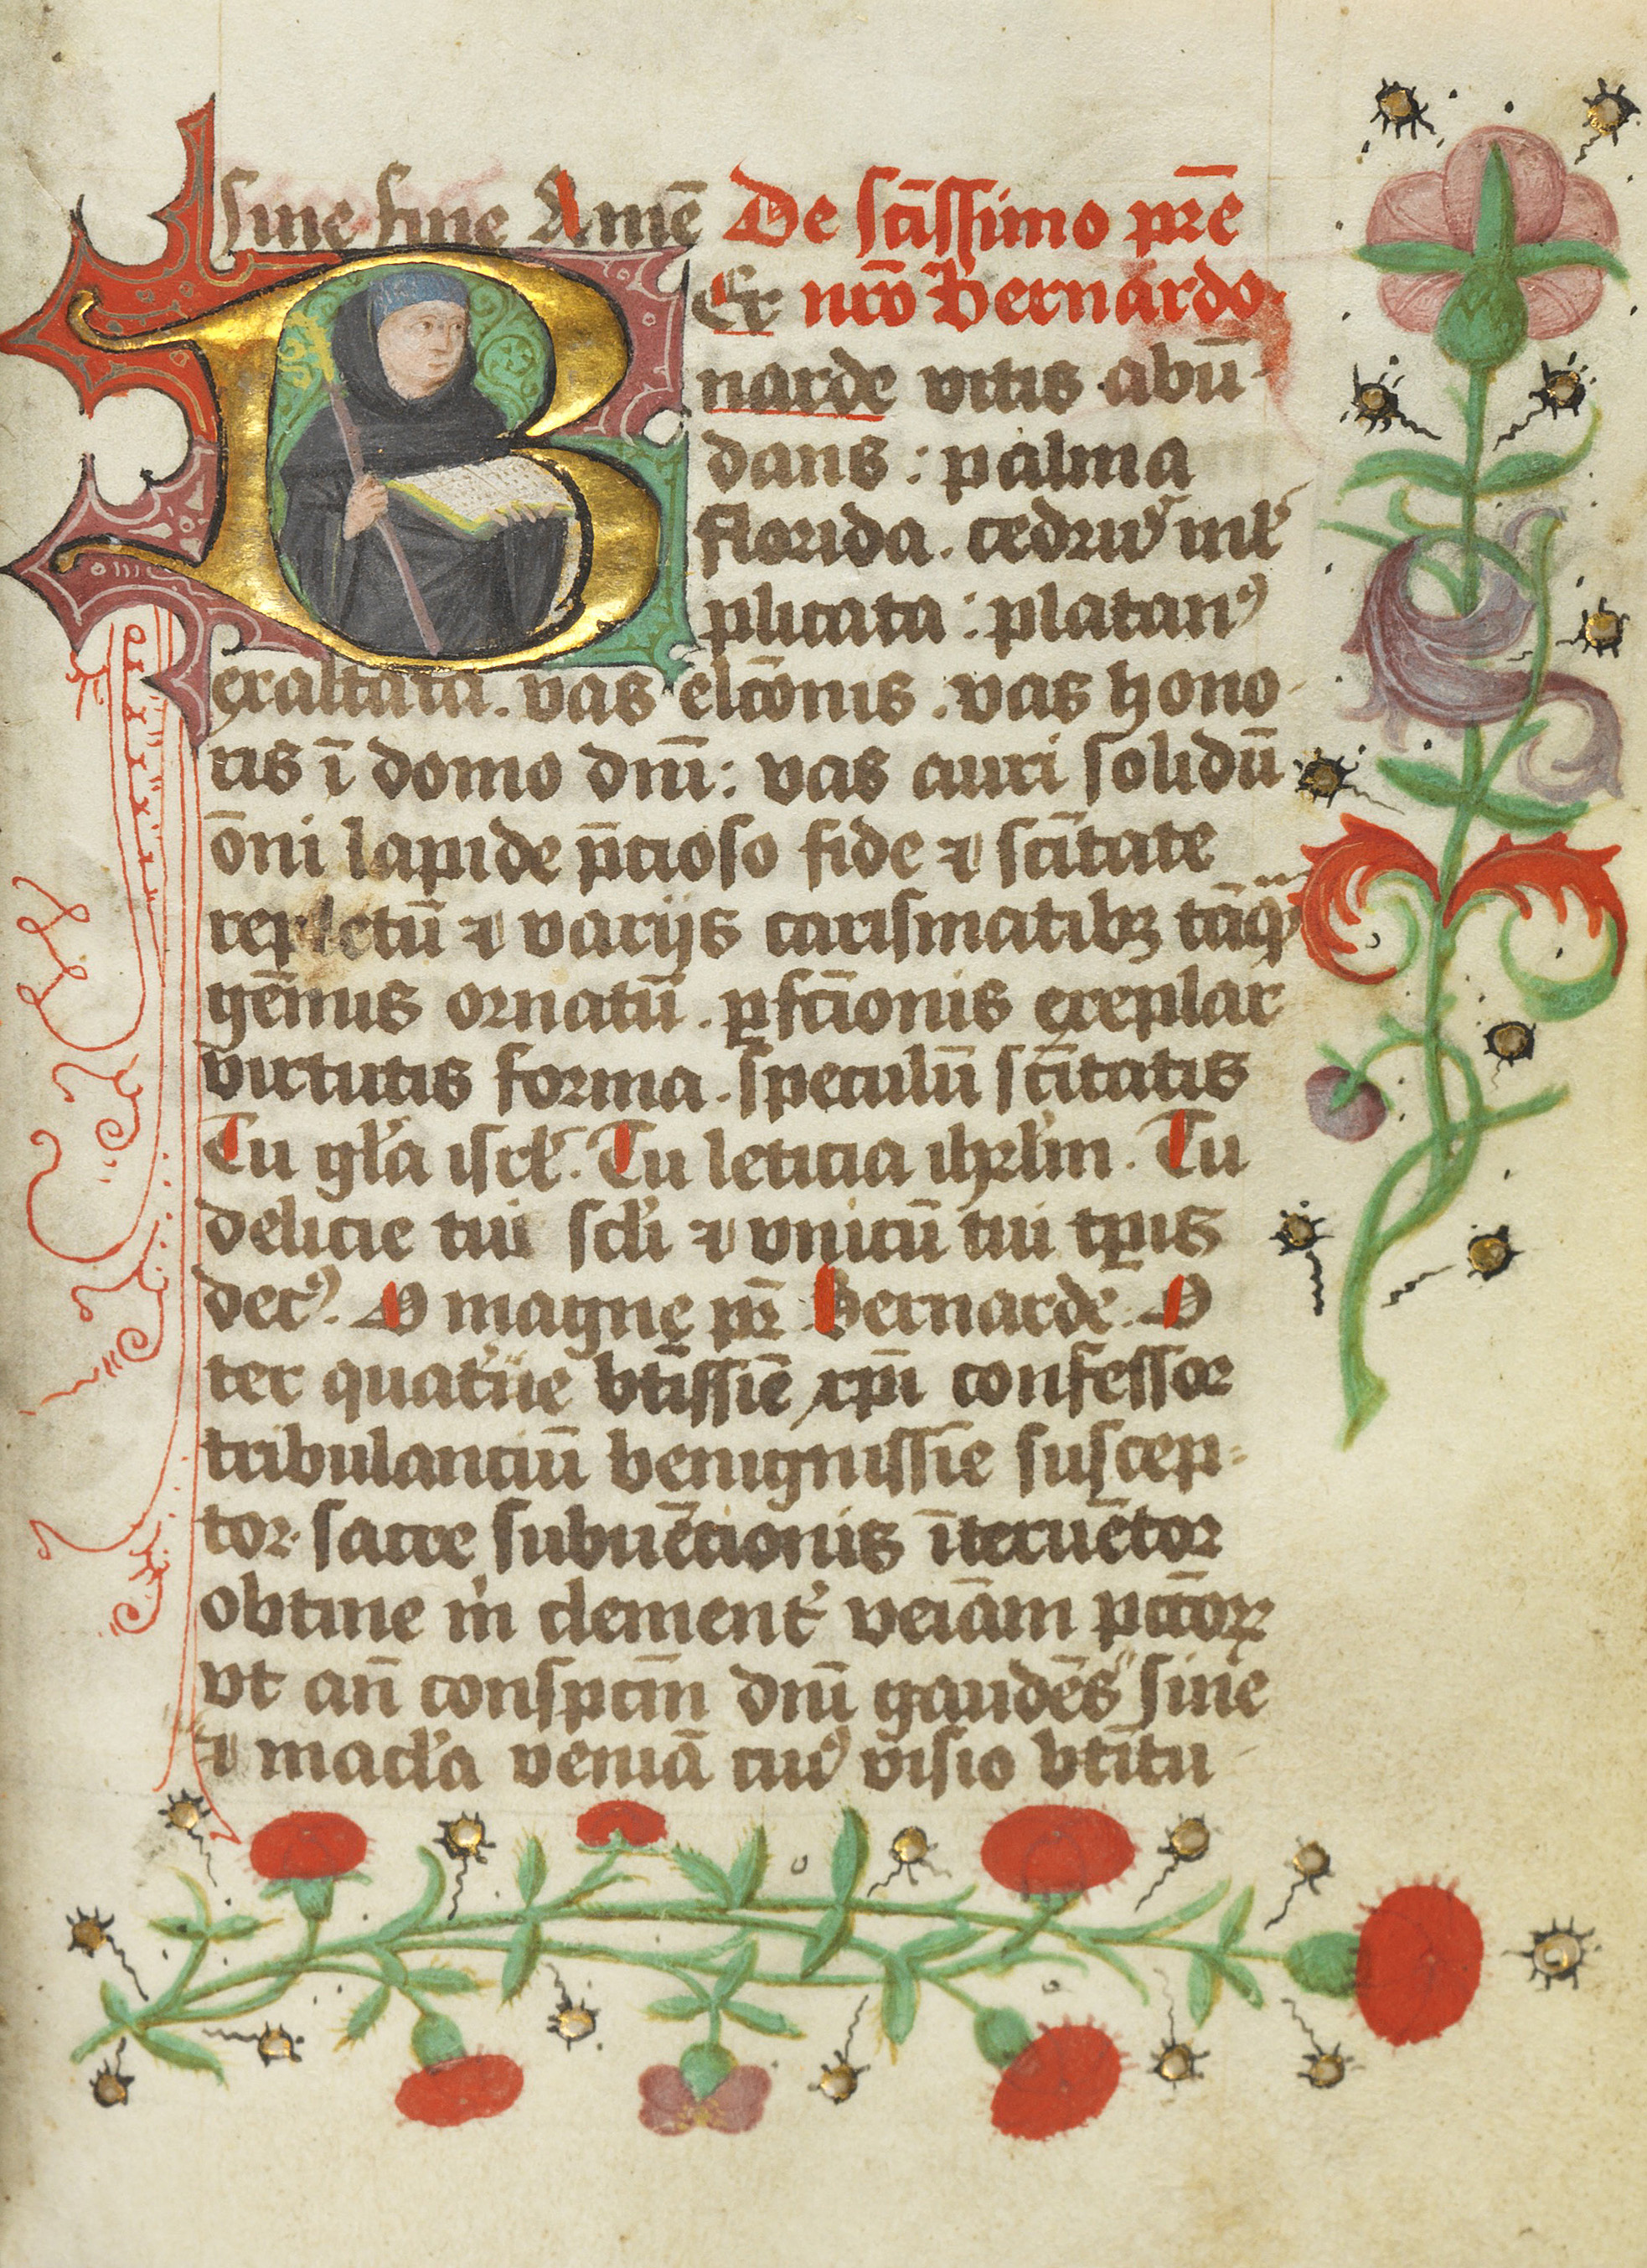 sine fine Amē De sc̄issimo pr̄e
Er nr̄o Bernardo.
narde vitis abū
dans : palma
florida . cedrus ml̓t
plicata : platanꝰ
exaltata . vas elc̄onis . vas hono
ris ī domo dn̄i : vas auri solidū
ōni lapide p̄cioso fide ⁊ sc̄itate
repletū ⁊ varijs carismatibꝫ tāqᷓ
gēmis ornatū . ꝑfc̄ionis exeplar
virtutis forma . speculū sc̄itatis
Tu gl̓a isrl̓ . Tu leticia ihrl̓m . Tu
delicie tui scl̓i ⁊ vnicū tui tp̄is
decꝰ . O magne pr̄ Bernarde . O
ter quaterͥ bt̄issiē xp̄i confessor
tribulanciū benignissīe suscep
tor . sacre subuēcionis īteruētor
obtine m̓ clement̓ veiām pc̄toꝝ
vt an̄ conspc̄m dn̄i gaudēs sine
⁊ macl̓a veniā cuiꝰ visio bt̄itu